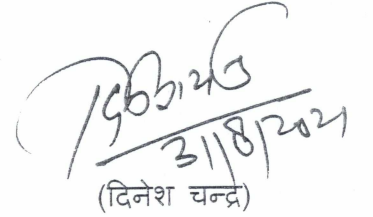 31/8/2021
(दिनेश चन्द्र)